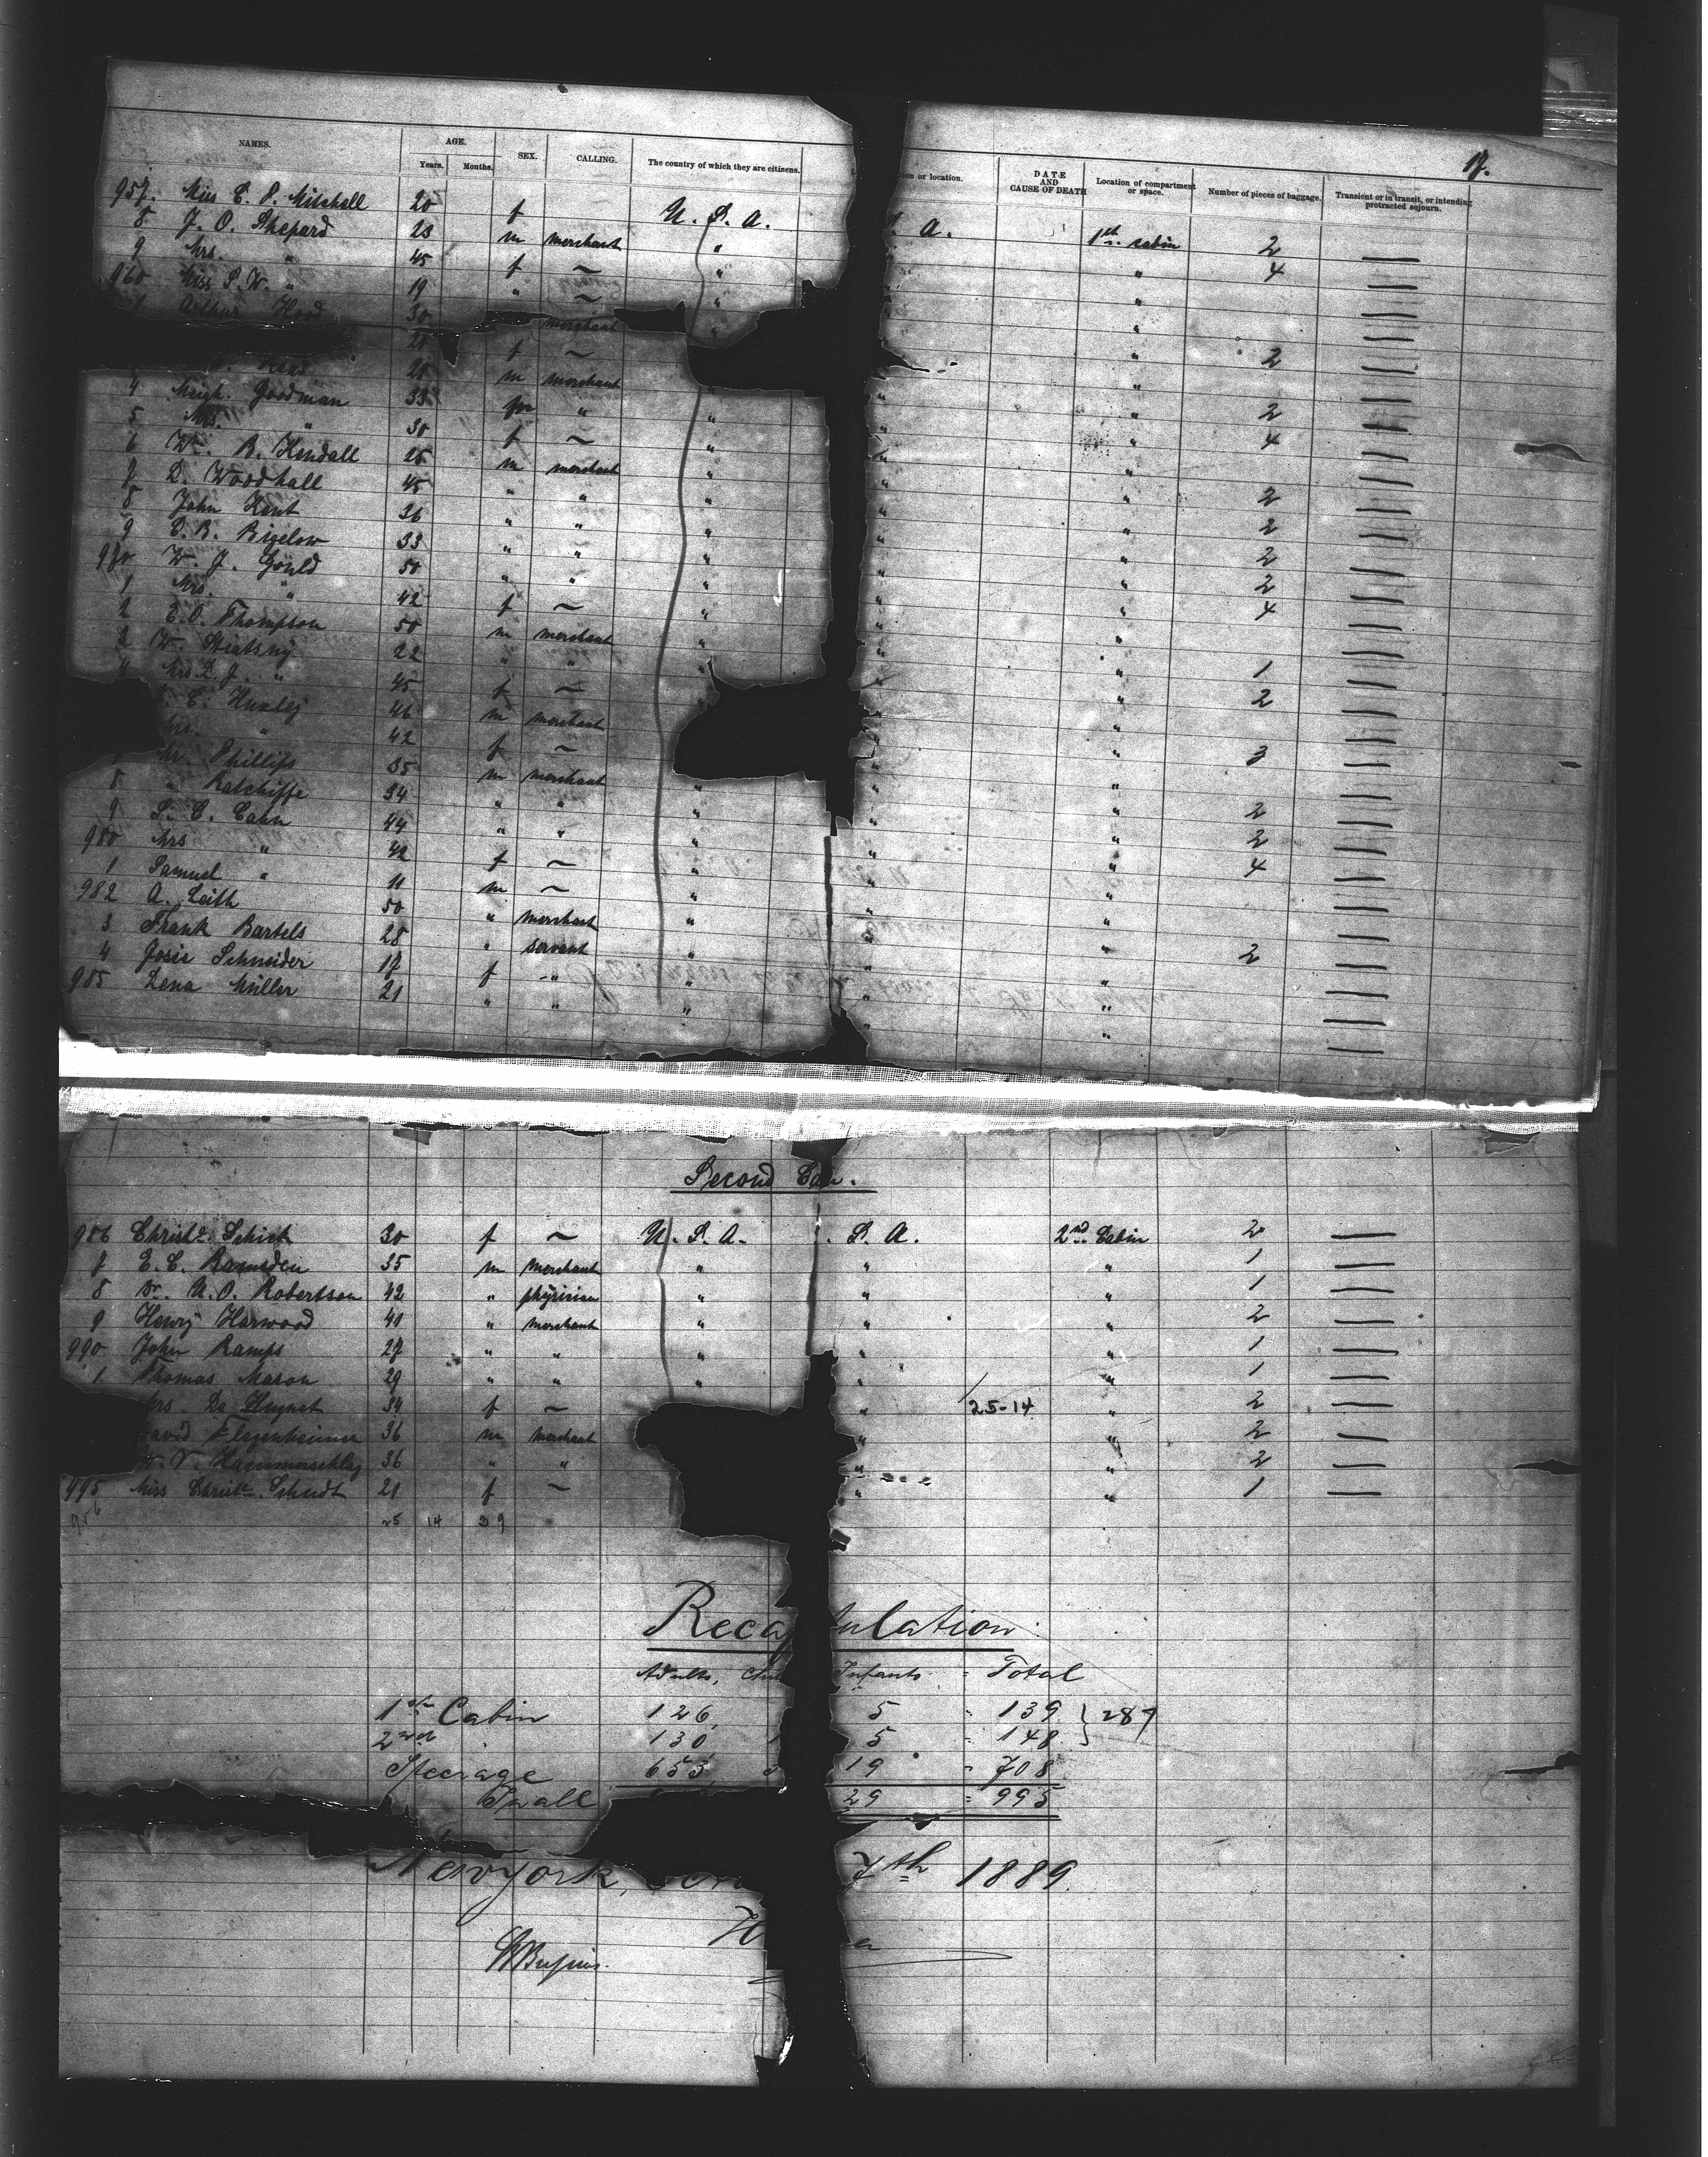 17.
NAMES. AGE. SEX. CALLING. The country of which they are citizens. or location. DATE AND CAUSE OF DEATH Location of compartment or space. Number of pieces of baggage. Transient or in transit, or intending protracted sojourn.
Years. Months.
957. Miss E. P. Mitchell 20 f U. S. A. . A. 1st cabin 2 —
8 J. O. Shepard 23 m merchant " " 4 —
9 Mrs. " 45 f ~ " " —
960 Miss S. W. " 19 " ~ " " —
1 Arthur Hood 30 merchant " " 2 —
20 f ~ " —
20 m merchant " " 2 —
4 Meigh. Goodman 33 " " " " 4 —
5 Mrs. " 30 f ~ " " " —
6 Wm. B. Kendall 25 m merchant " " " 2 —
7 D. Woodhall 45 " " " " " 2 —
8 John Kent 36 " " " " " 2 —
9 E. B. Bigelow 33 " " " " " 2 —
970 W. J. Gould 50 " " " " " 4 —
1 Mrs. " 42 f ~ " " " —
2 E. O. Thompson 50 m merchant " " " 1 —
3 W. 22 " " " " " 2 —
Mrs. D. J. " 45 f ~ " " —
E. Huxley 46 m merchant " " 3 —
Mrs. " 42 f ~ " " —
Mr Phillips 35 m merchant " " 2 —
8 " Ratchiffe 34 " " " " " 2 —
9 S. E. Cahn 44 " " " " " 4 —
980 Mrs " 42 f ~ " " " —
1 Samuel " 11 m ~ " " " —
982 A. Leith 50 " merchant " " " 2 —
3 Frank Bartels 28 " servant " " " —
4 Josie Schneider 17 f " " " " —
985 Lena Müller 21 " " " " " —
Second Ca .
986 Christe. Schick 30 f ~ U. S. A. . S. A. 2nd Cabin 2 —
7 E. C. Ramsden 35 m merchant " " " 1 —
8 Dr. U. O. Robertson 42 " physician " " " 1 —
9 Henry Harwood 40 " merchant " " " 2 —
990 John Ramps 27 " " " " " 1 —
1 Thomas Mason 29 " " " " " 1 —
rs. De Huynet 34 f ~ " 25-14 " 2 —
avid Flegenheimer 36 m merchant " " 2 —
V. Hammerschlag 36 " " " " 2 —
995 Miss Christe. Schmidt 21 f ~ " " 1 —
956 25 14 39
Reca ulation
Adults, Infants = Total
1st Cabin 126, 5 = 139 } 287
2nd 130 1 5 = 148
Steerage 653, 19 = 708
In all 29 = 995
New York, 7th 1889.
H er